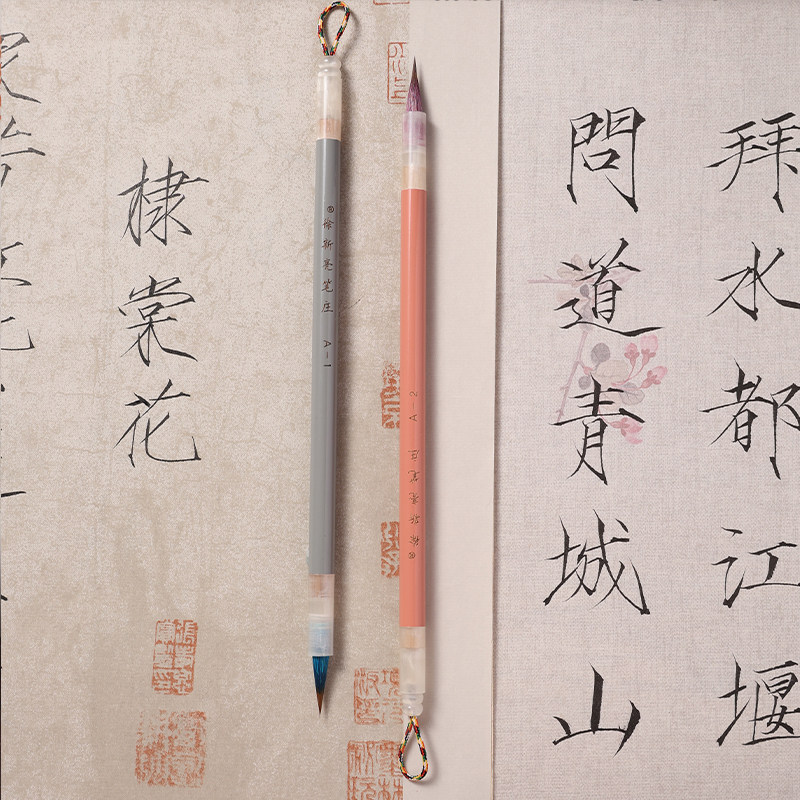 拜水都江堰
問道青城山
®徐斯亮笔庄 A-2
®徐斯亮笔庄 A-1
棣棠花